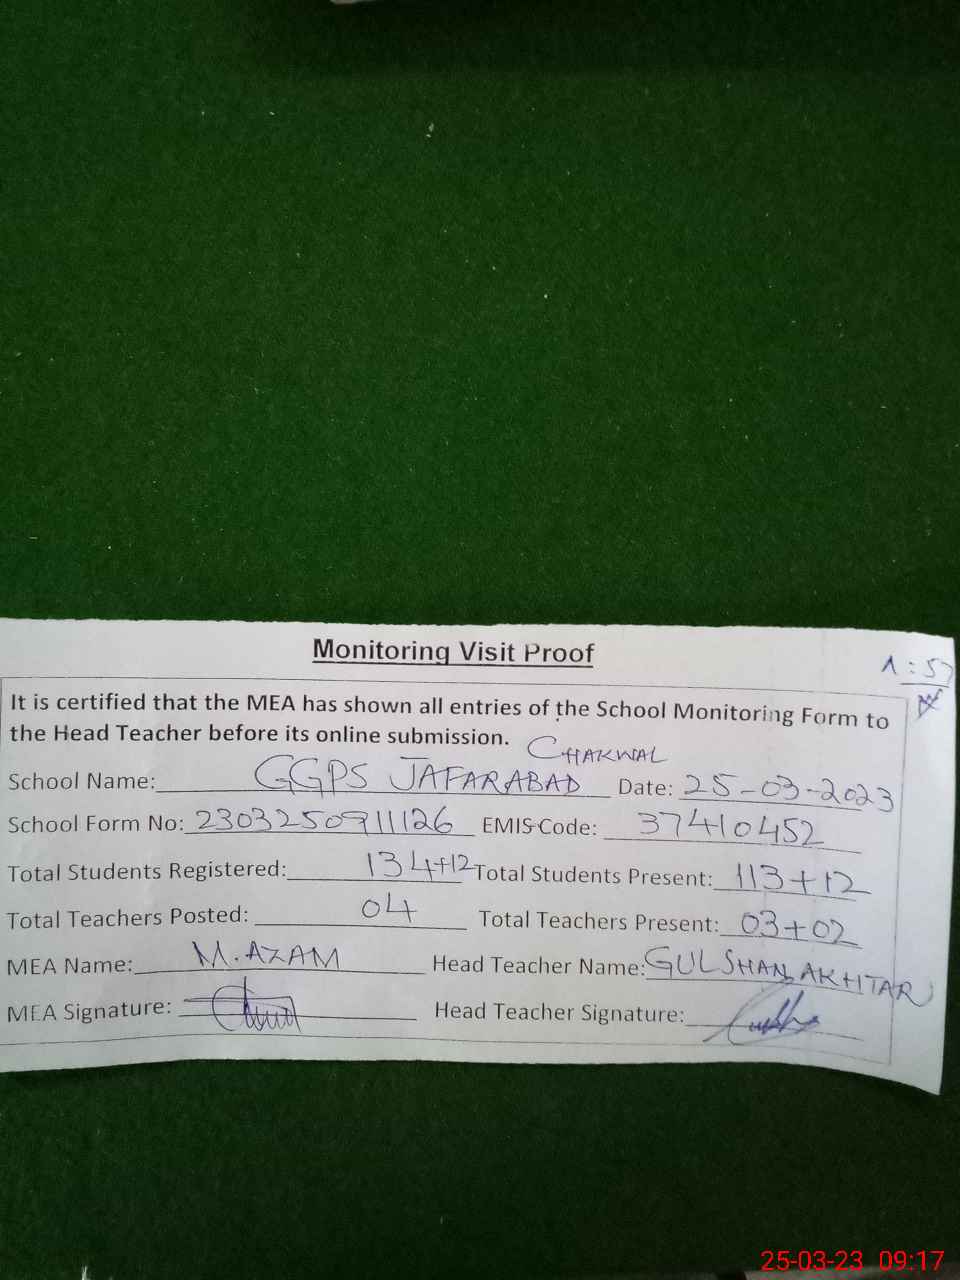 Monitoring Visit Proof
1:57
It is certified that the MEA has shown all entries of the School Monitoring Form to
the Head Teacher before its online submission.
CHAKWAL
School Name: GGPS JAFARABAD Date: 25-03-2023
School Form No: 2303250911126 EMIS Code: 37410452
Total Students Registered: 134+12 Total Students Present: 113+12
Total Teachers Posted: 04 Total Teachers Present: 03+02
MEA Name: M. AZAM Head Teacher Name: GULSHAN AKHTAR
MEA Signature: Head Teacher Signature:
25-03-23 09:17